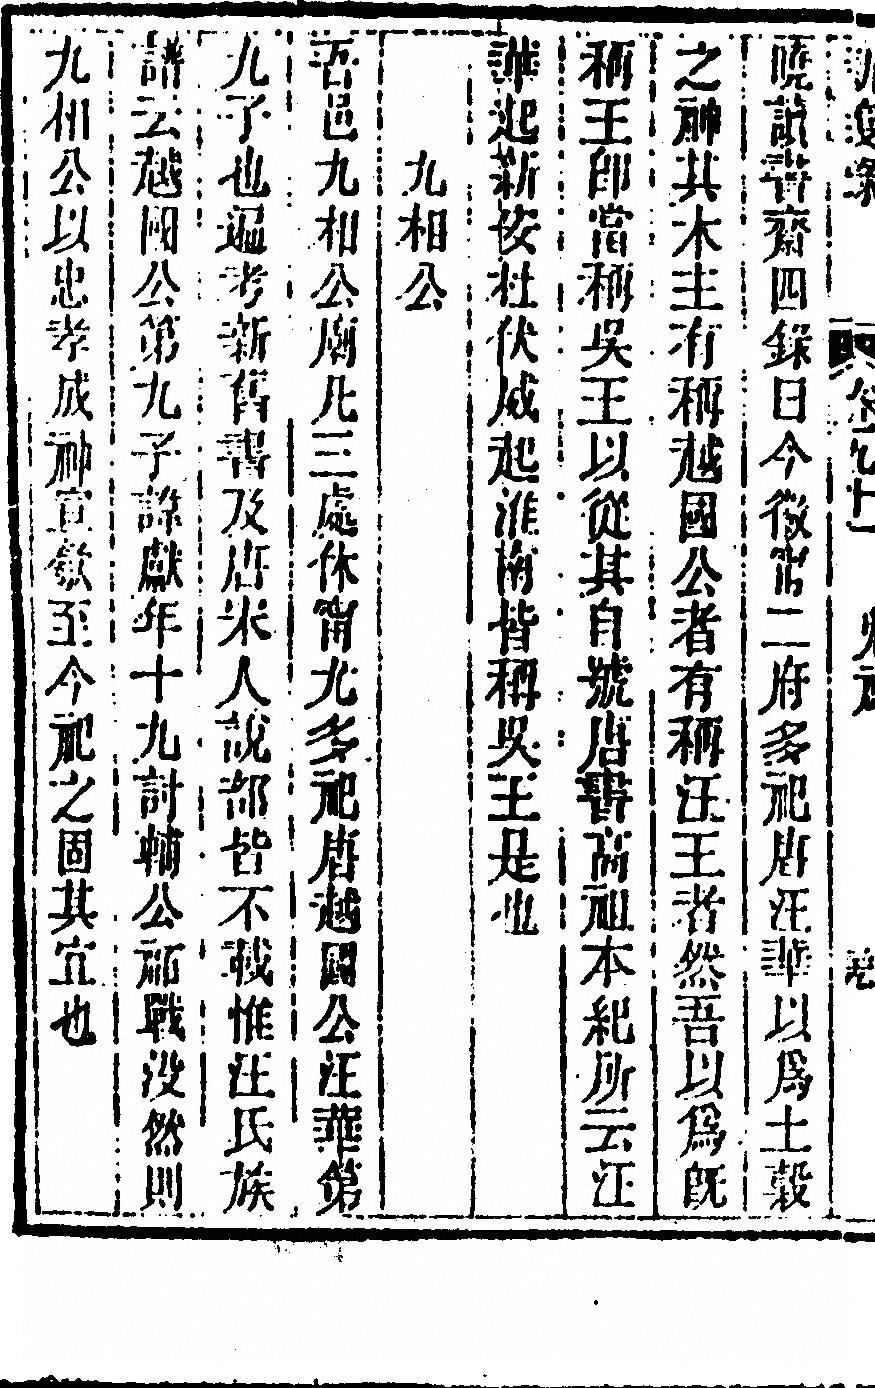 曉讀書齋四錄曰今徽甯二府多祀唐汪華以爲土穀
之神其木主有稱越國公者有稱汪王者然吾以爲旣
稱王卽當稱吳王以從其自號唐書高祖本紀所云汪
華起新安杜伏威起淮南皆稱吳王是也
九相公
吾邑九相公廟凡三處休甯尤多祀唐越國公汪華第
九子也遍考新舊書及唐宋人說部皆不載惟汪氏族
譜云越國公第九子諱獻年十九討輔公祏戰沒然則
九相公以忠孝成神宜歙至今祀之固其宜也